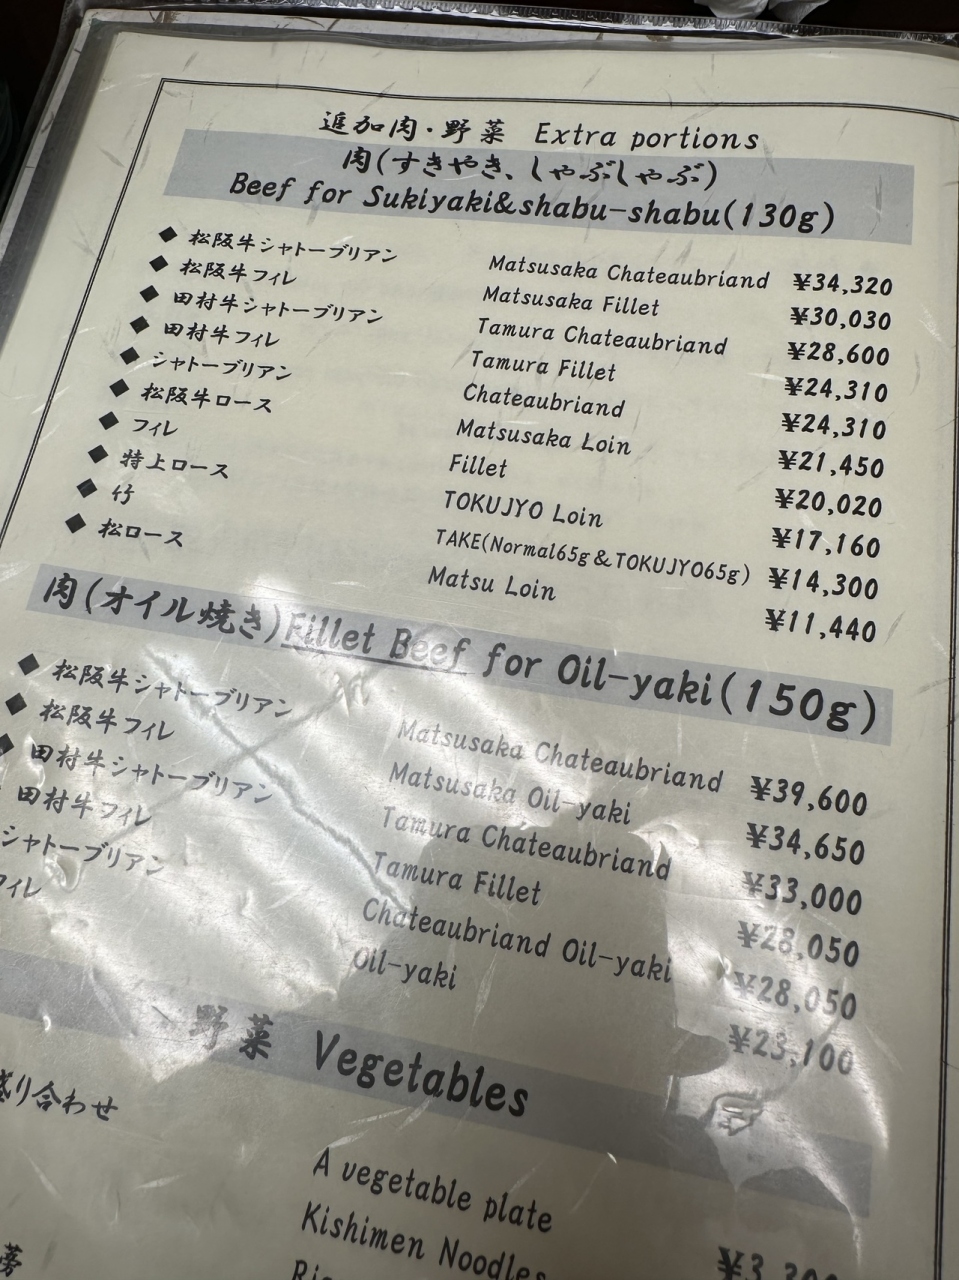 追加肉・野菜 Extra portions
肉(すきやき、しゃぶしゃぶ)
Beef for Sukiyaki&shabu-shabu(130g)
◆ 松阪牛シャトーブリアン Matsusaka Chateaubriand ¥34,320
◆ 松阪牛フィレ Matsusaka Fillet ¥30,030
◆ 田村牛シャトーブリアン Tamura Chateaubriand ¥28,600
◆ 田村牛フィレ Tamura Fillet ¥24,310
◆ シャトーブリアン Chateaubriand ¥24,310
◆ 松阪牛ロース Matsusaka Loin ¥21,450
◆ フィレ Fillet ¥20,020
◆ 特上ロース TOKUJYO Loin ¥17,160
◆ 竹 TAKE(Normal65g&TOKUJYO65g) ¥14,300
◆ 松ロース Matsu Loin ¥11,440
肉(オイル焼き)Fillet Beef for Oil-yaki(150g)
◆ 松阪牛シャトーブリアン Matsusaka Chateaubriand ¥39,600
◆ 松阪牛フィレ Matsusaka Oil-yaki ¥34,650
◆ 田村牛シャトーブリアン Tamura Chateaubriand ¥33,000
田村牛フィレ Tamura Fillet ¥28,050
シャトーブリアン Chateaubriand Oil-yaki ¥28,050
フィレ Oil-yaki ¥23,100
野菜 Vegetables
盛り合わせ A vegetable plate
Kishimen Noodles